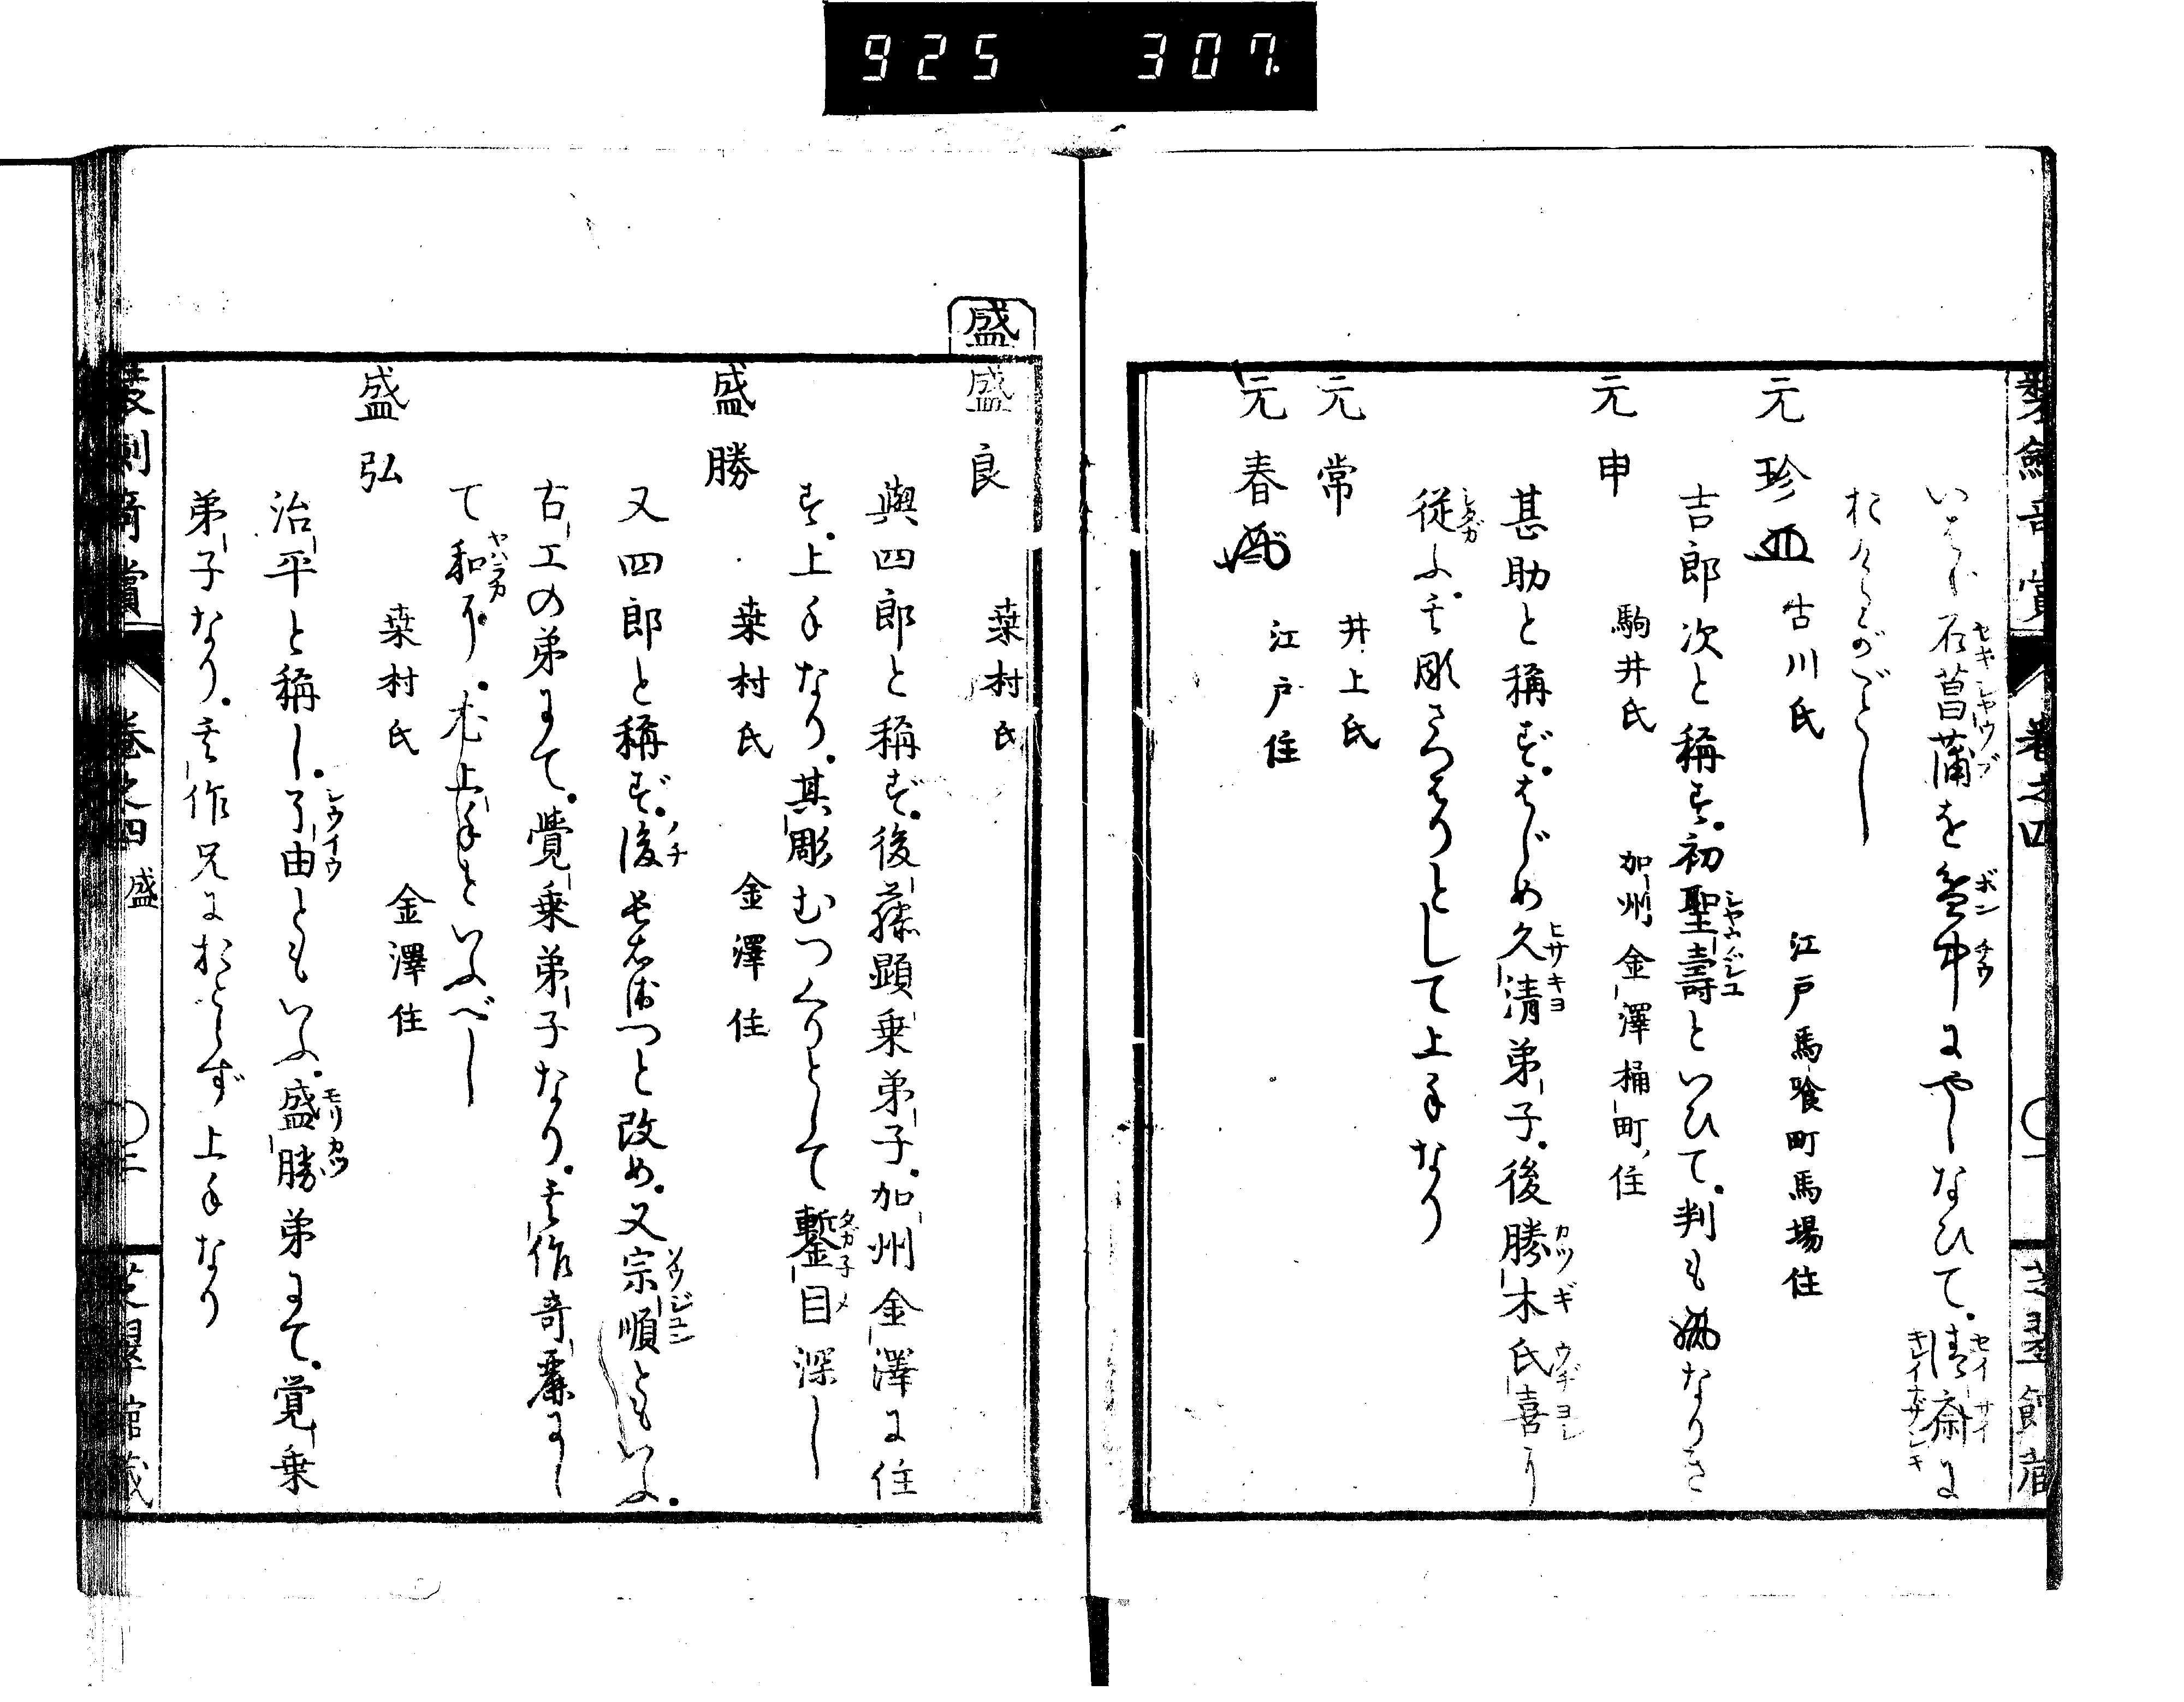 925 307
装劔奇賞 巻之四 芝翠館蔵
いはゞ石菖蒲を盆中にやしなひて。清斎に
おくらるゝがごとし
元珍 古川氏 江戸馬喰町馬場住
吉郎次と稱す。初聖壽といひて。判も なりき
元申 駒井氏 加州金澤桶町住
甚助と稱ず。はじめ久清弟子。後勝木氏喜に
従ふ。其彫さつはりとして上手なり
元常 井上氏
元春 江戸住
盛
盛良 桒村氏
與四郎と稱ず。後藤顕乗弟子。加州金澤に住
す。上手なり。其彫むつくりとして鏨目深し
盛勝 桒村氏 金澤住
又四郎と稱ず。後 と改め。又宗順ともいふ。
古工の弟にて。覺乗弟子なり。其作奇麗にし
て和か。尤上手といふべし
盛弘 桒村氏 金澤住
治平と稱し。了由ともいふ。盛勝弟にて。覚乗
弟子なり。其作兄におとらず上手なり
装劔奇賞 巻之四 盛 〇二 芝翠館蔵